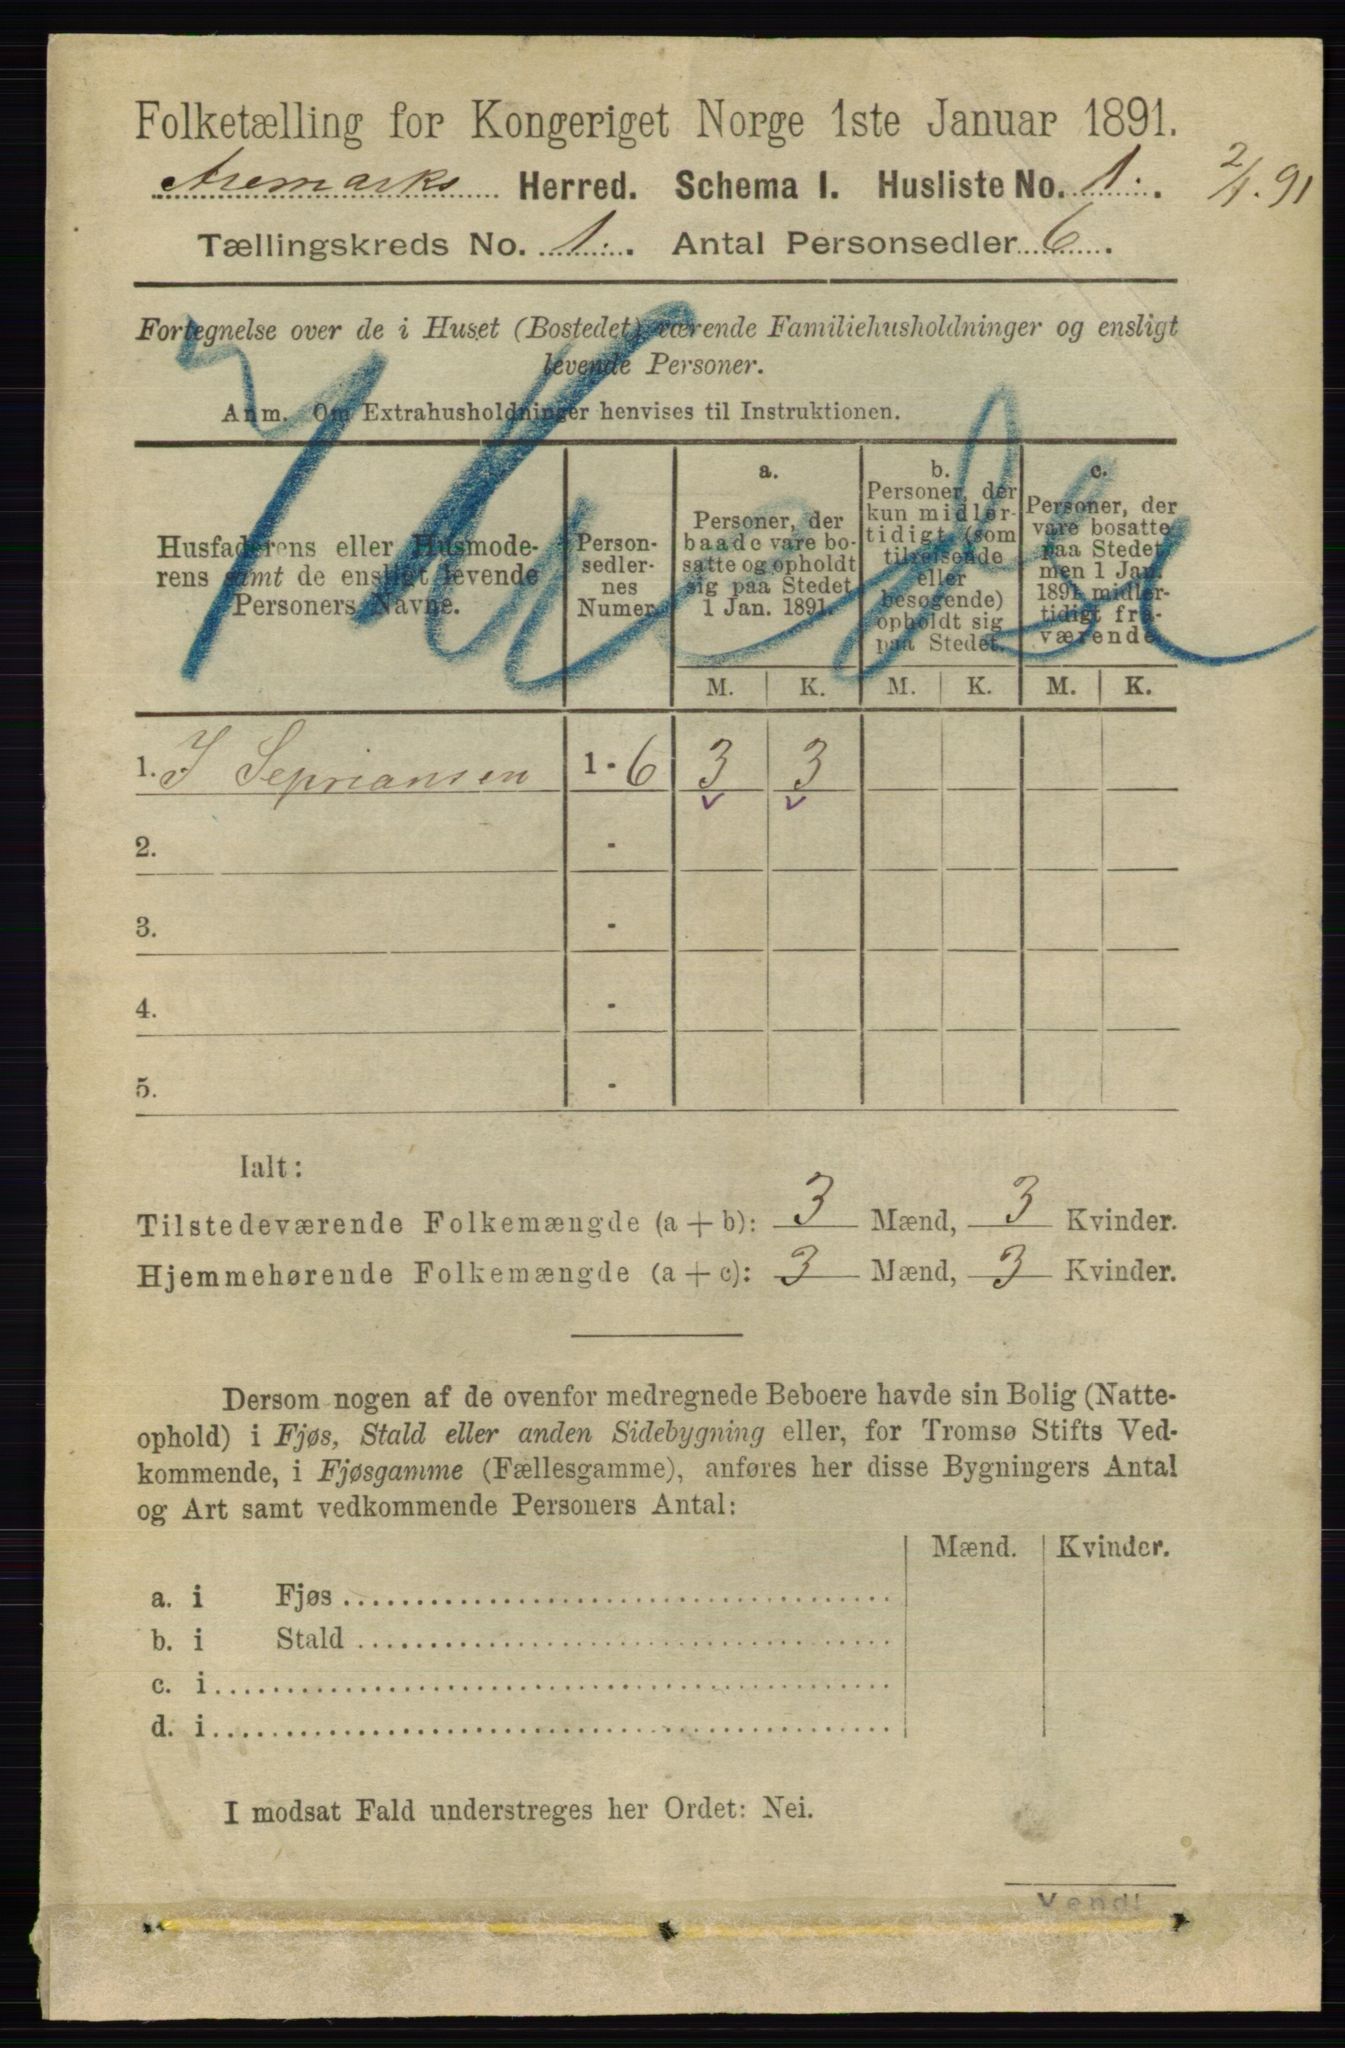 Folketælling for Kongeriget Norge 1ste Januar 1891.
Aremarks Herred. Schema 1. Husliste No. 1. 2/1.91
Tællingskreds No. 1. Antal Personsedler 6.
Fortegnelse over de i Huset (Bostedet) værende Familiehusholdninger og ensligt
levende Personer.
Anm. Om Extrahusholdninger henvises til Instruktionen.
Husfaderens eller Husmode-
rens samt de ensligt levende
Personers Navne.
Person-
sedler-
nes
Numer.
a.
Personer, der
baade vare bo-
satte og opholdt
sig paa Stedet
1 Jan. 1891.
b.
Personer, der
kun midler-
tidigt (som
tilreisende
eller
besøgende)
opholdt sig
paa Stedet.
c.
Personer, der
vare bosatte
paa Stedet,
men 1 Jan.
1891 midler-
tidigt fra-
værende.
M. K. M. K. M. K.
1. J Sepriansen 1 - 6 3 3
2. -
3. -
4. -
5. -
Ialt:
Tilstedeværende Folkemængde (a + b): 3 Mænd, 3 Kvinder.
Hjemmehørende Folkemængde (a + c): 3 Mænd, 3 Kvinder.
Dersom nogen af de ovenfor medregnede Beboere havde sin Bolig (Natte-
ophold) i Fjøs, Stald eller anden Sidebygning eller, for Tromsø Stifts Ved-
kommende, i Fjøsgamme (Fællesgamme), anføres her disse Bygningers Antal
og Art samt vedkommende Personers Antal:
Mænd. Kvinder.
a. i Fjøs
b. i Stald
c. i
d. i
I modsat Fald understreges her Ordet: Nei.
Vend!